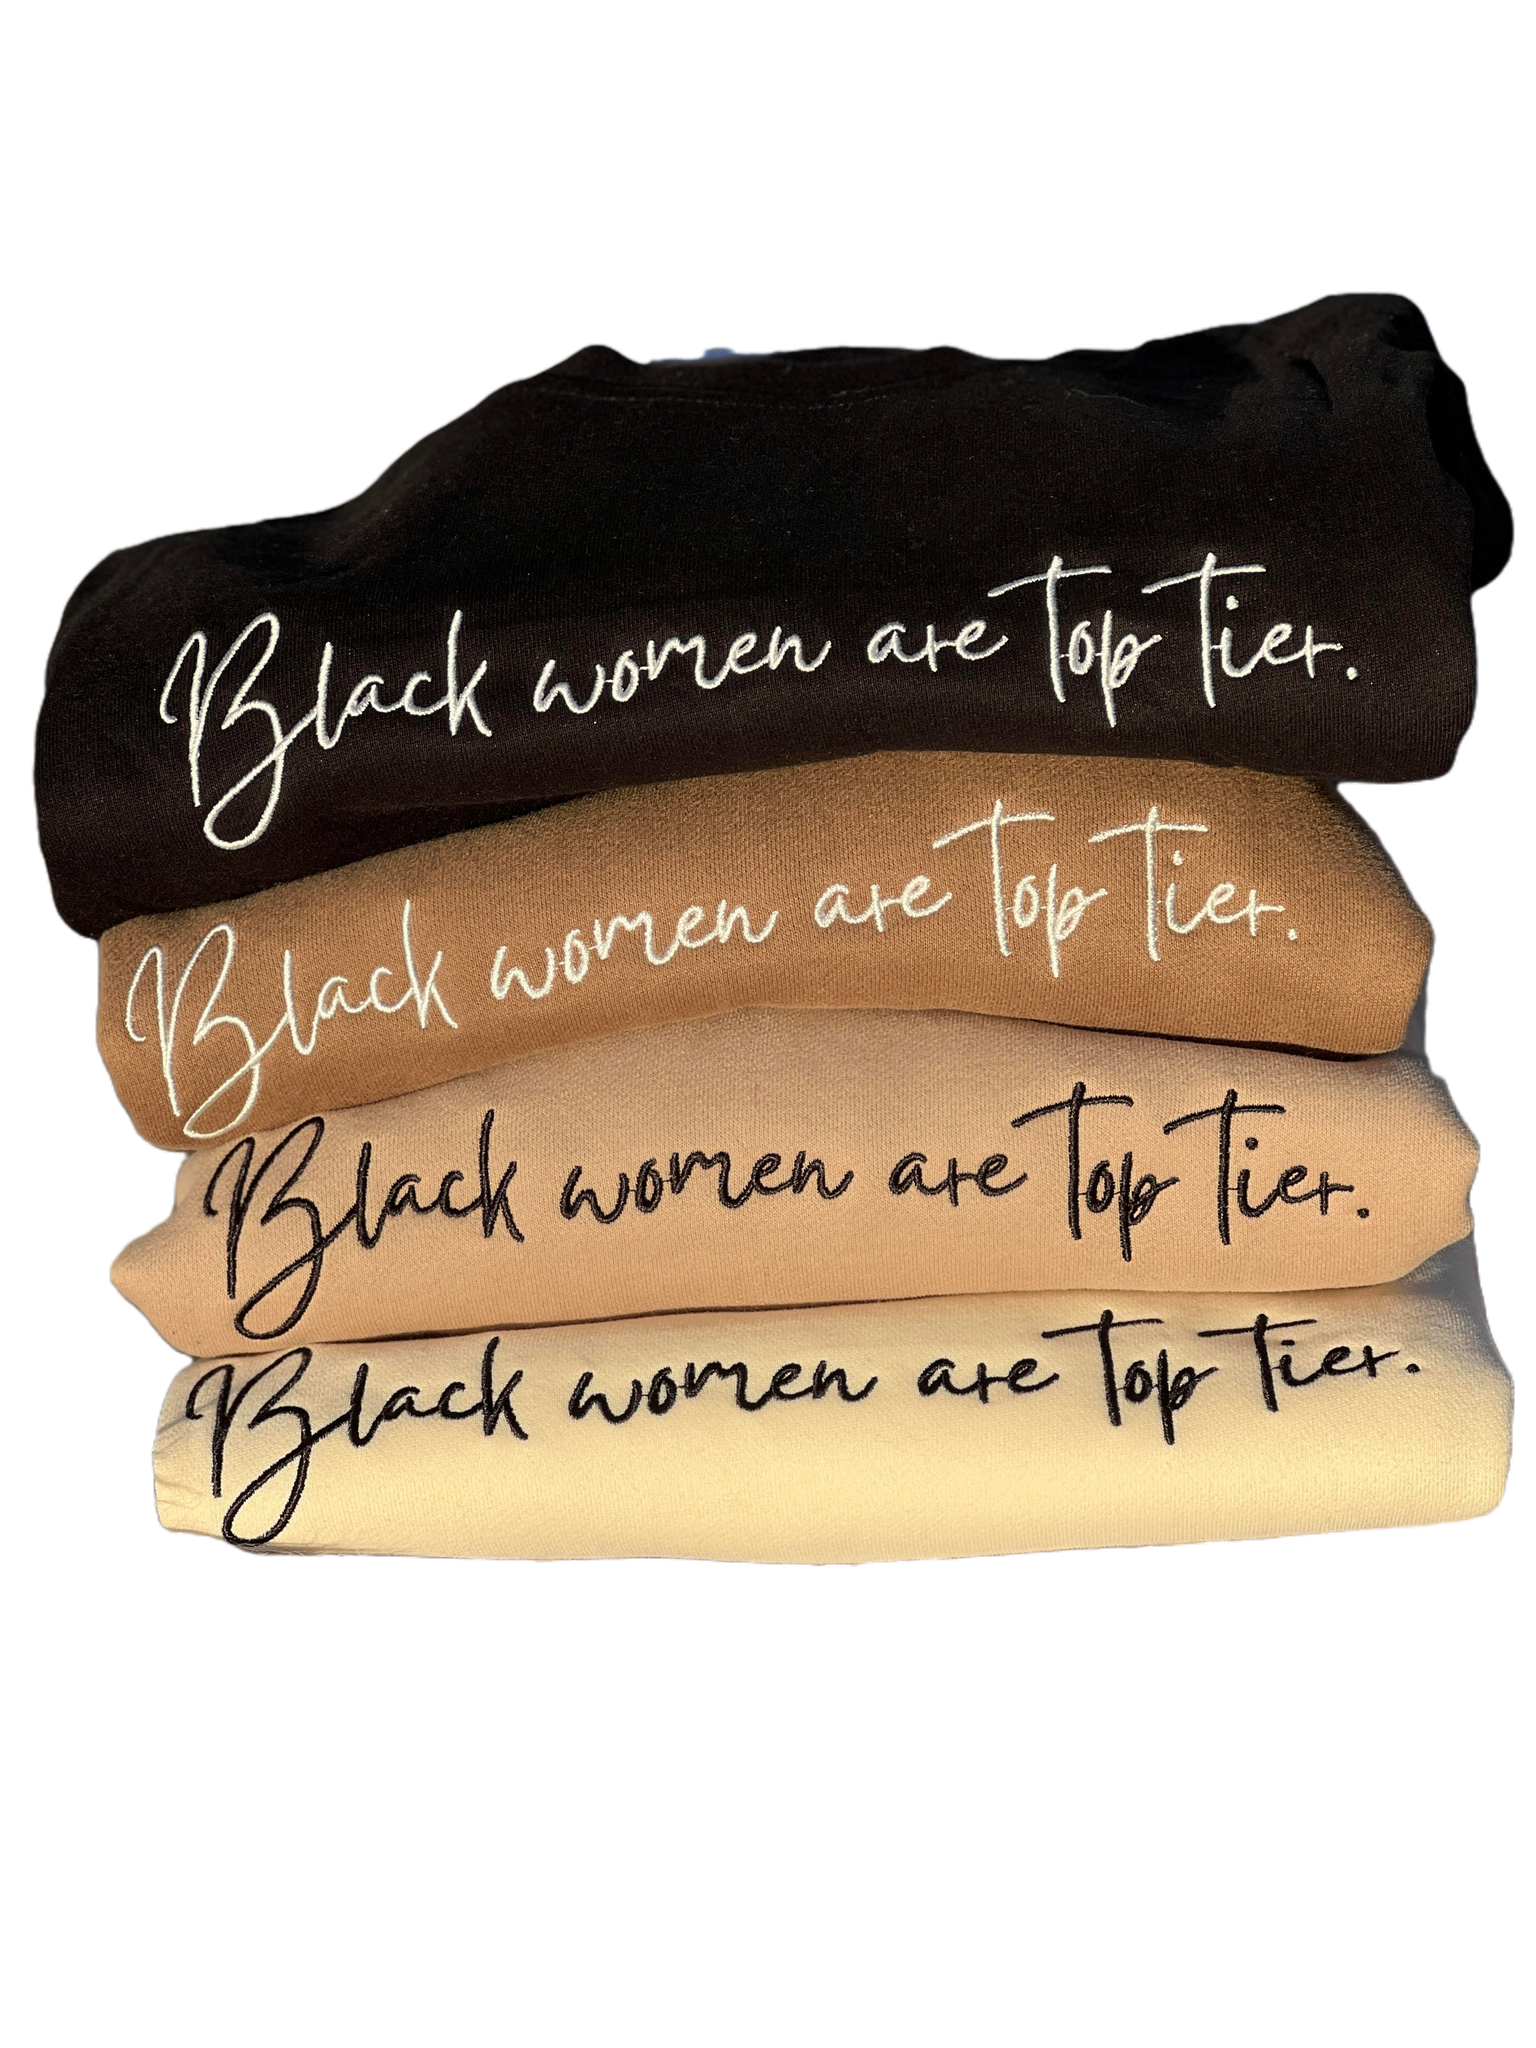 Black women are Top Tier.
Black women are Top Tier.
Black women are Top Tier.
Black women are Top Tier.